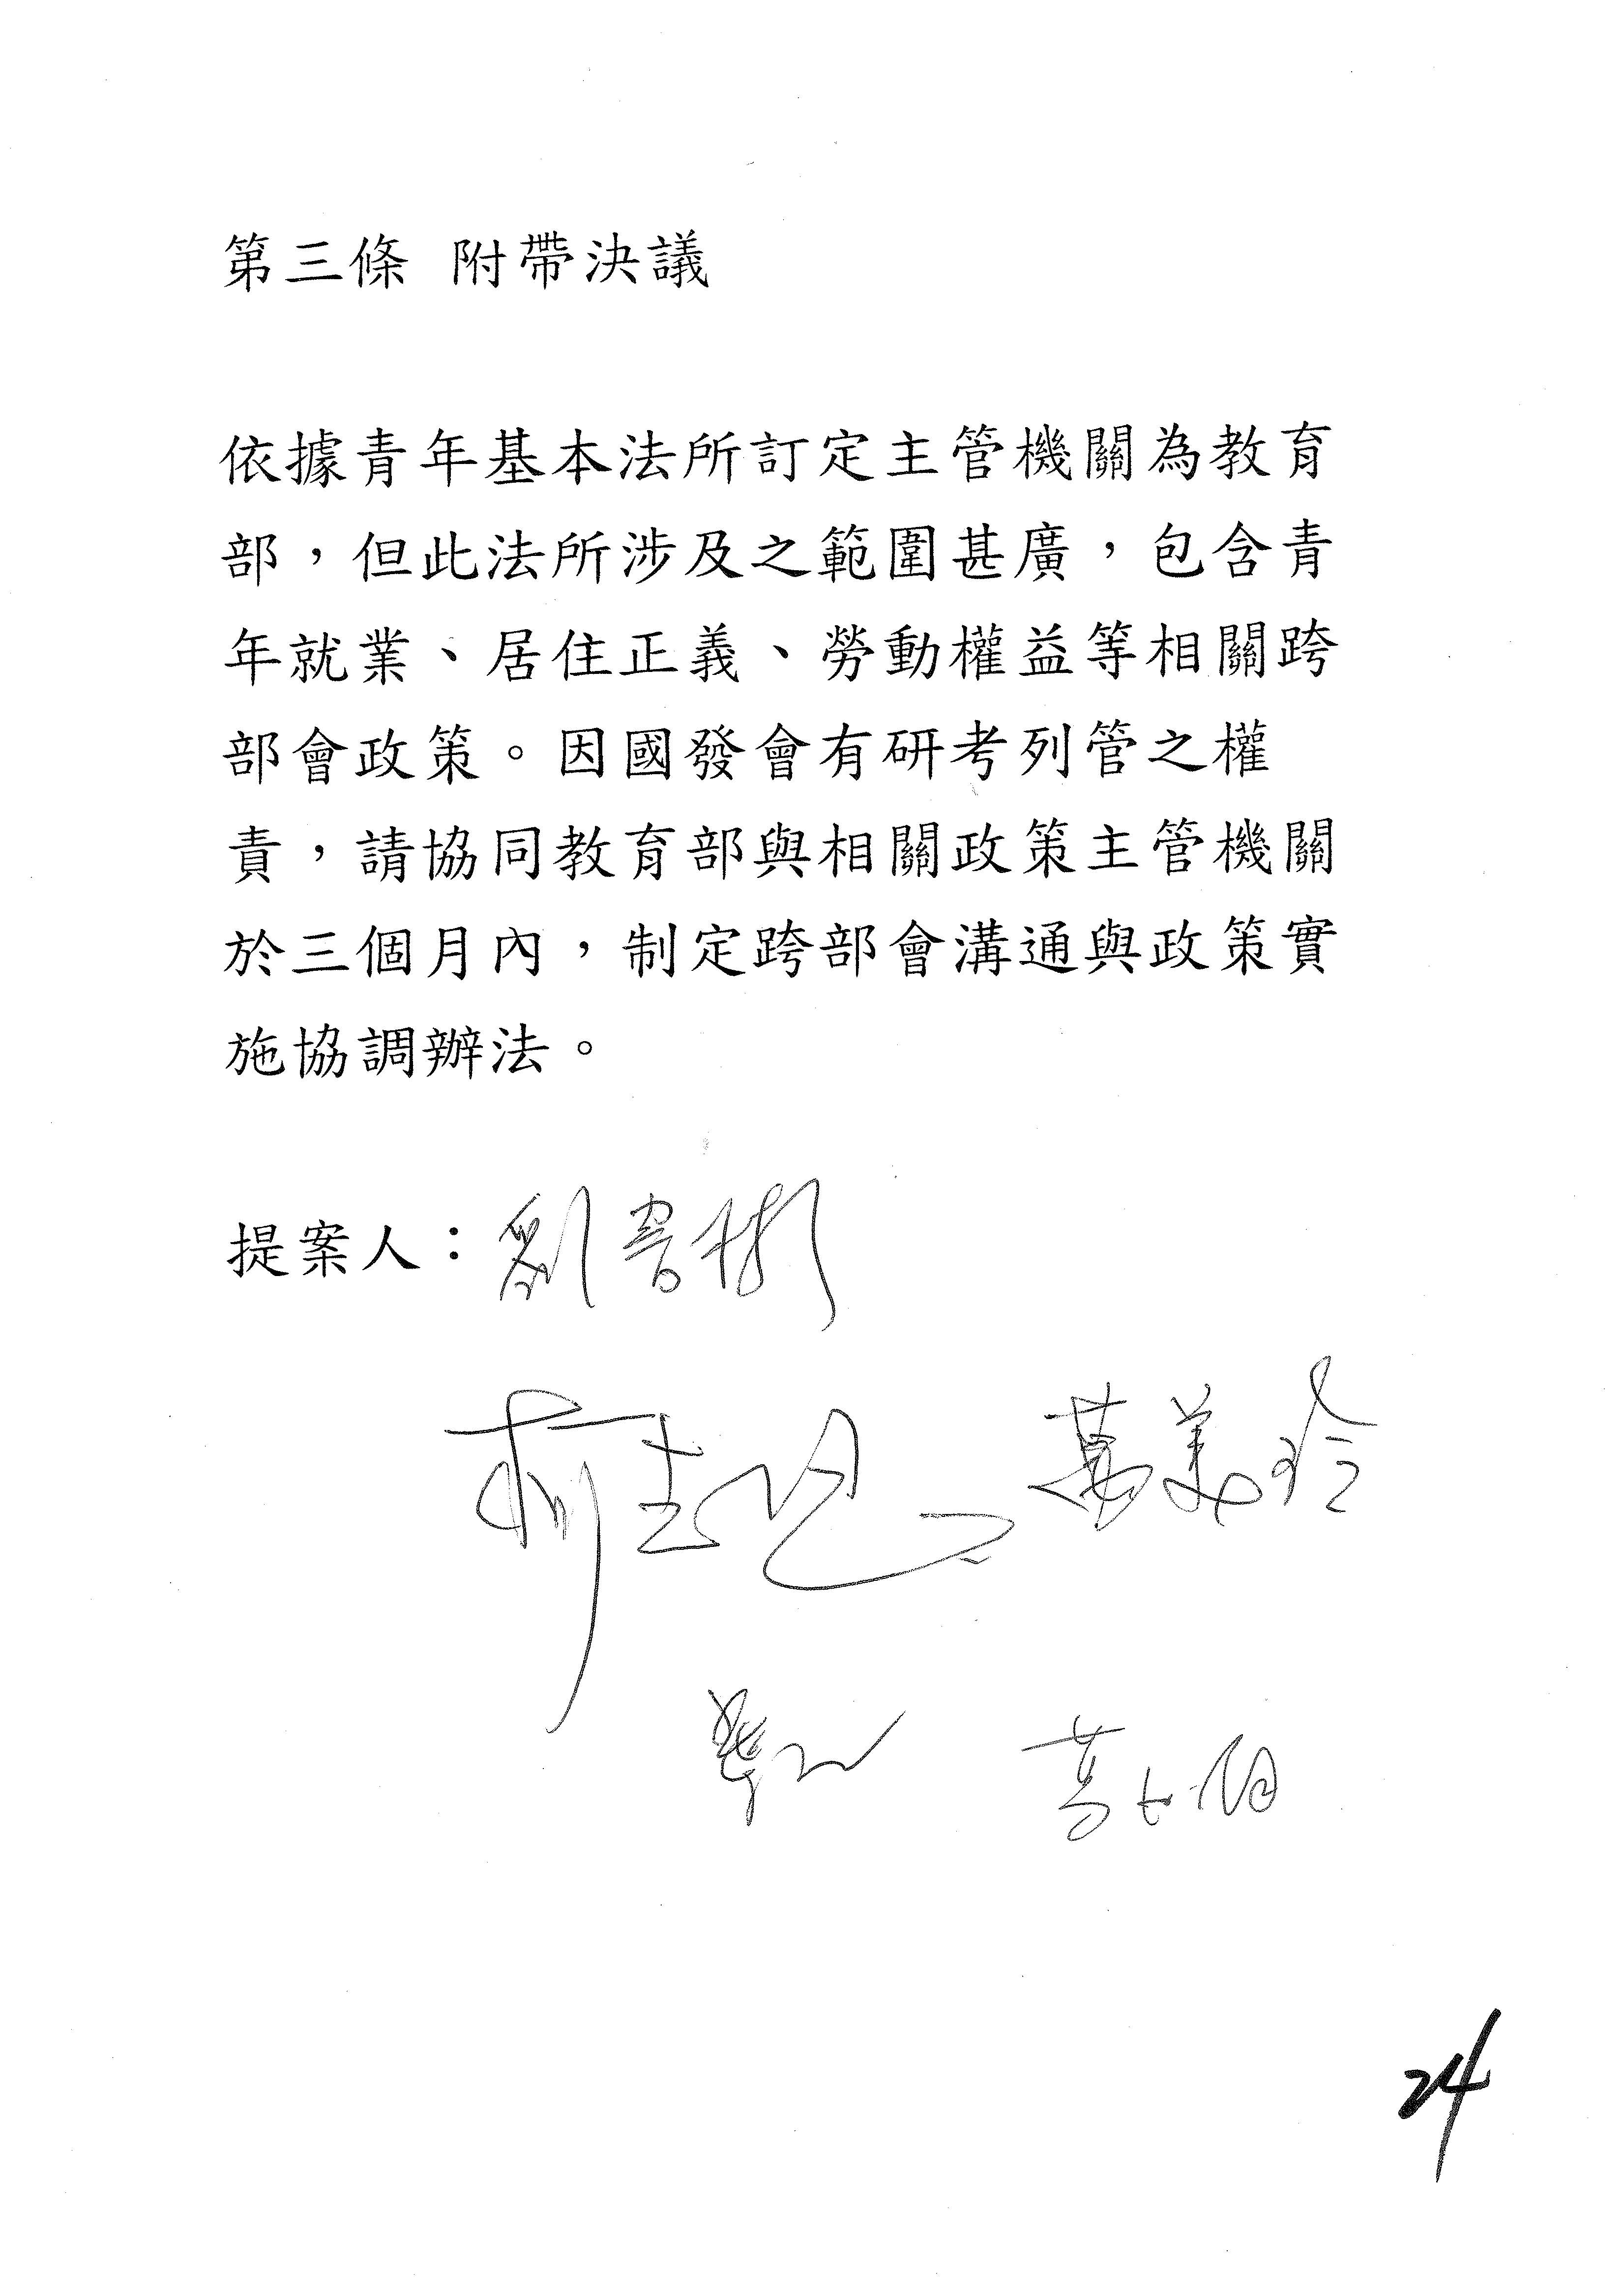 第三條 附帶決議
依據青年基本法所訂定主管機關為教育
部，但此法所涉及之範圍甚廣，包含青
年就業、居住正義、勞動權益等相關跨
部會政策。因國發會有研考列管之權
責，請協同教育部與相關政策主管機關
於三個月內，制定跨部會溝通與政策實
施協調辦法。
提案人：劉書彬
萬美玲
24